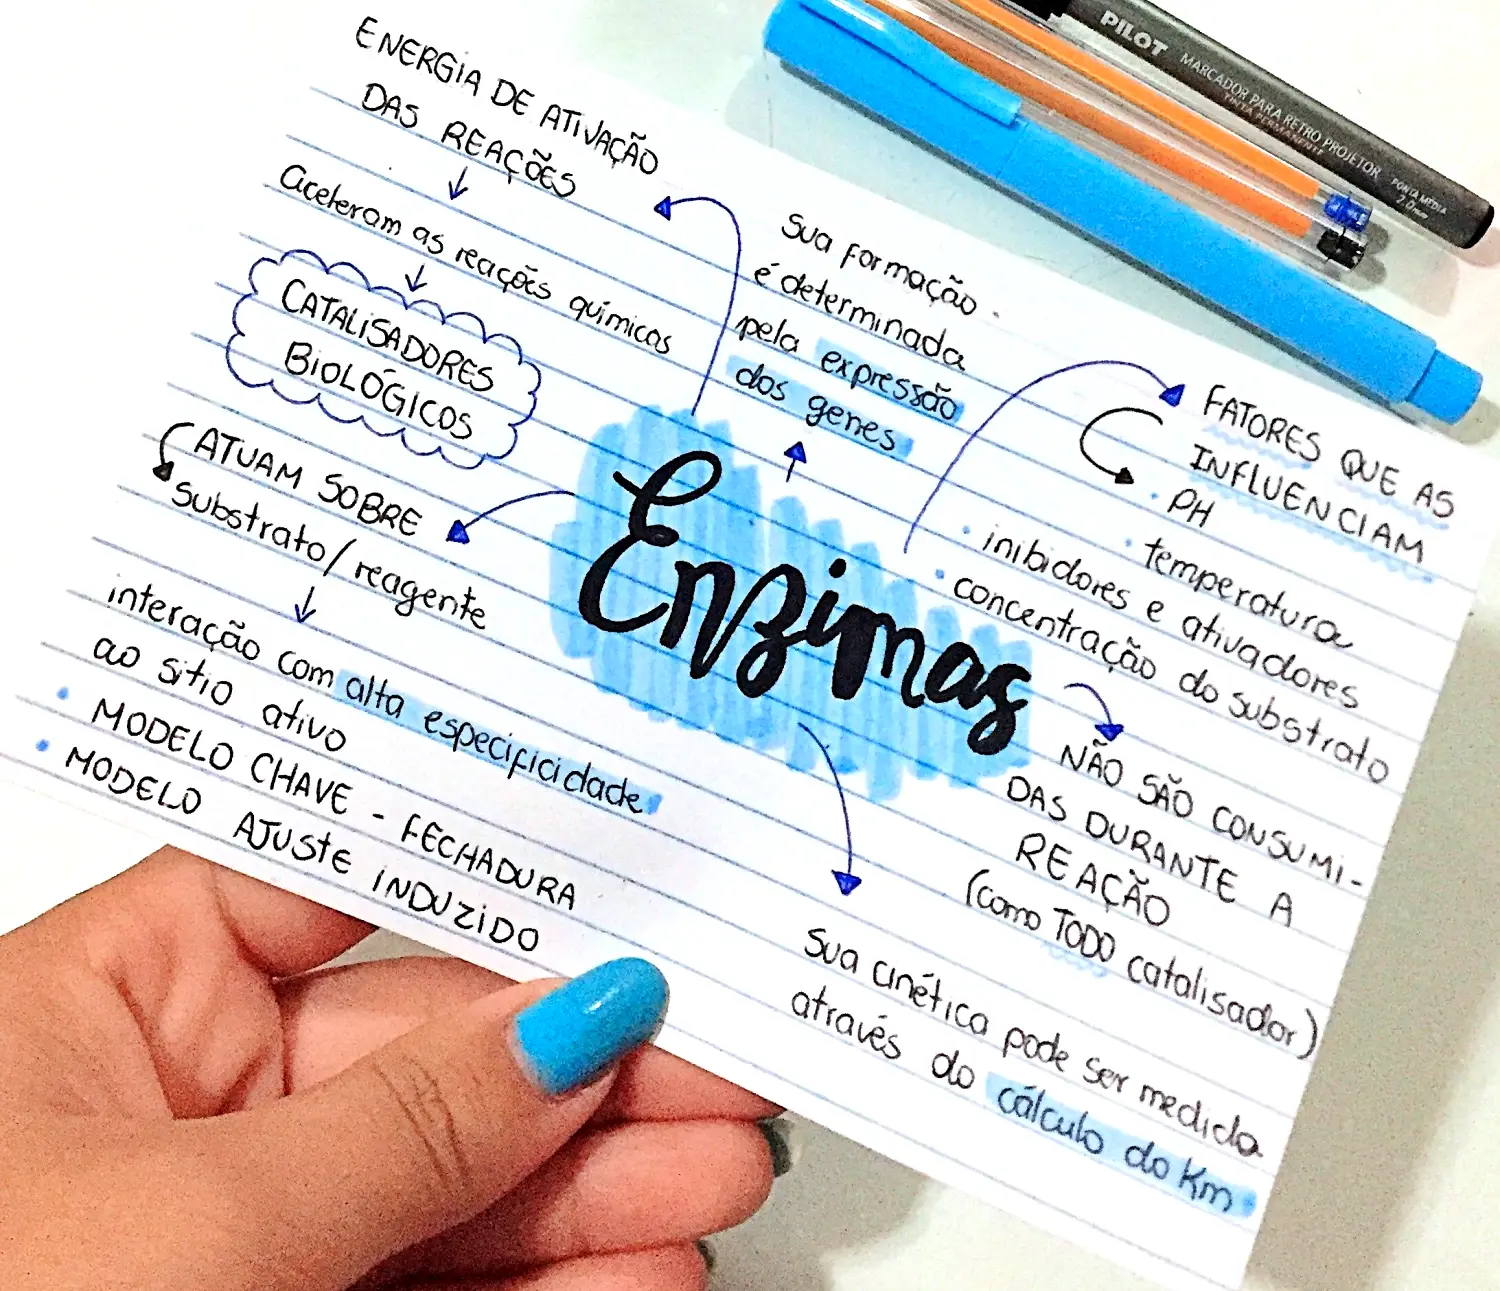 ENERGIA DE ATIVAÇÃO
DAS REAÇÕES
aceleram as reações químicas
CATALISADORES
BIOLÓGICOS
ATUAM SOBRE
substrato/reagente
interação com alta especificidade
ao sitio ativo
• MODELO CHAVE - FECHADURA
• MODELO AJUSTE INDUZIDO
Sua formação
é determinada
pela expressão
dos genes
Enzimas
FATORES QUE AS
INFLUENCIAM
• PH
• temperatura
• inibidores e ativadores
• concentração do substrato
NÃO SÃO CONSUMI-
DAS DURANTE A
REAÇÃO
(como TODO catalisador)
Sua cinética pode ser medida
através do cálculo do Km
PILOT MARCADOR PARA RETRO PROJETOR
TINTA PERMANENTE
PONTA MÉDIA
2.0mm